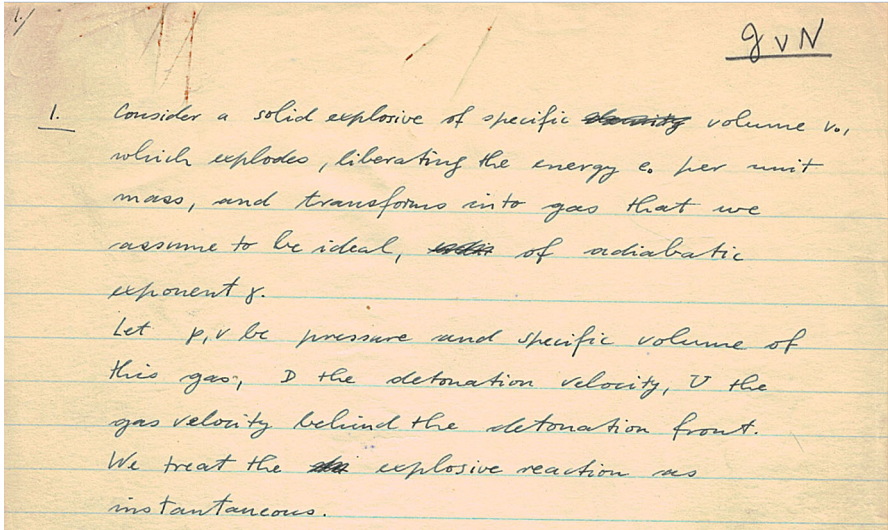 1./
J v N
1. Consider a solid explosive of specific volume v₀,
which explodes, liberating the energy e₀ per unit
mass, and transforms into gas that we
assume to be ideal, of adiabatic
exponent γ.
Let p, v be pressure and specific volume of
this gas, D the detonation velocity, U the
gas velocity behind the detonation front.
We treat the explosive reaction as
instantaneous.